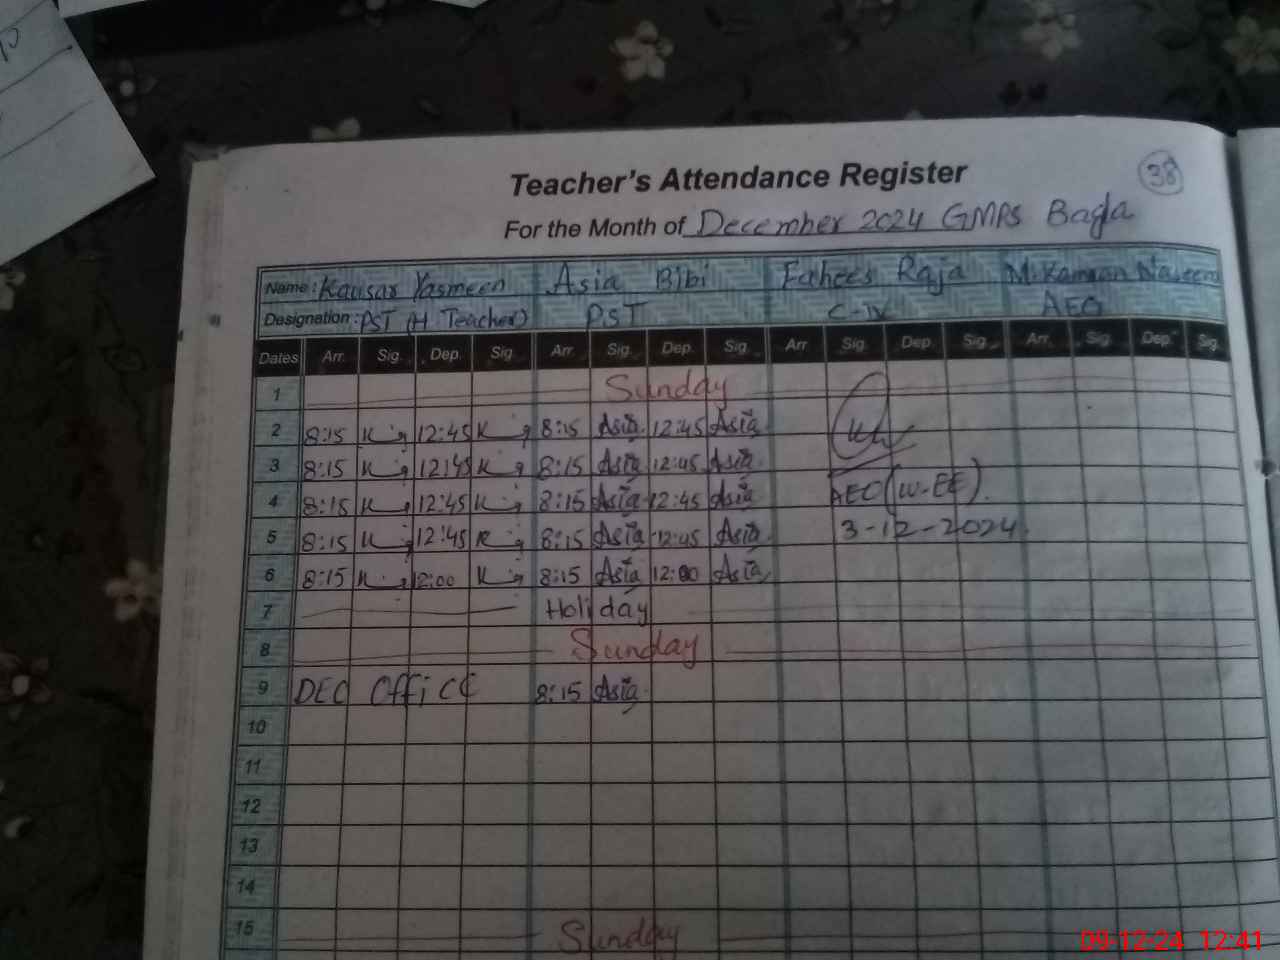 Teacher's Attendance Register
38
For the Month of December 2024 GMPS Bagla
Name: Kausar Yasmeen Asia Bibi Fahees Raja M. Kamran Naseem
Designation: PST (H Teacher) PST C-IV AEO
Dates Arr. Sig. Dep. Sig. Arr. Sig. Dep. Sig. Arr. Sig. Dep. Sig. Arr. Sig. Dep. Sig.
1 Sunday
2 8:15 12:45 8:15 Asia 12:45 Asia
3 8:15 12:45 8:15 Asia 12:45 Asia
4 8:15 12:45 8:15 Asia 12:45 Asia AEO (W-EE).
5 8:15 12:45 8:15 Asia 12:45 Asia 3-12-2024
6 8:15 12:00 8:15 Asia 12:00 Asia
7 Holiday
8 Sunday
9 DEO Office 8:15 Asia
10
11
12
13
14
15 Sunday
09-12-24 12:41